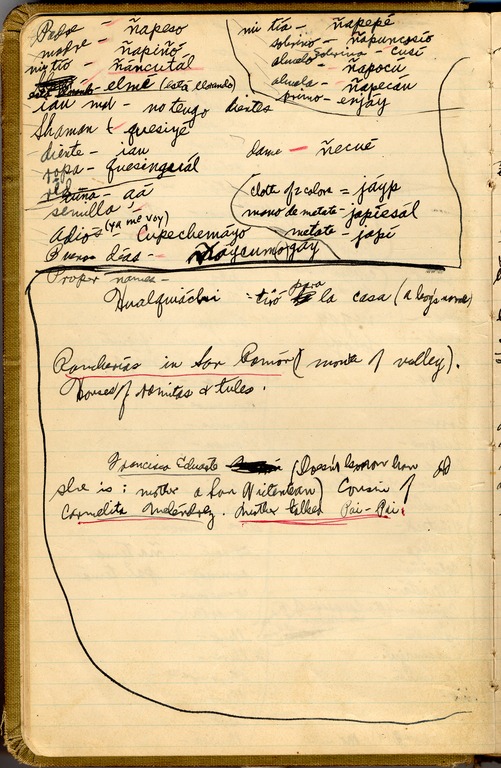 Padre - ñapeso
madre - ñapiñó
mi tío - ñáncutál
elmé (está llorando)
iau mal - no tengo dientes
Shaman - quesiyé
diente - iau
ropa - quesinguiál
uña - aá
semilla
Adiós (ya me voy) Cupechemáyo
Buenos días -
mi tía - ñapepé
sobrino - ñapuncosió
sobrina - cusí
abuelo - ñapocú
abuela - ñapecán
primo - enjáy
dame - ñecué
cloth of 2 colors = jáyp
mano de metate - japiesál
metate - japí
Proper names -
Hualquiáchi = tiró para la casa (a boy's name)
Rancherías in San Ramón (mouth of valley).
Houses of ramitas & tules.
Francisca Eduarte (Doesn't know how old
she is; mother a San Vicentean) Cousin of
Carmelita Meléndrez. Mother talked Pai-Pai.